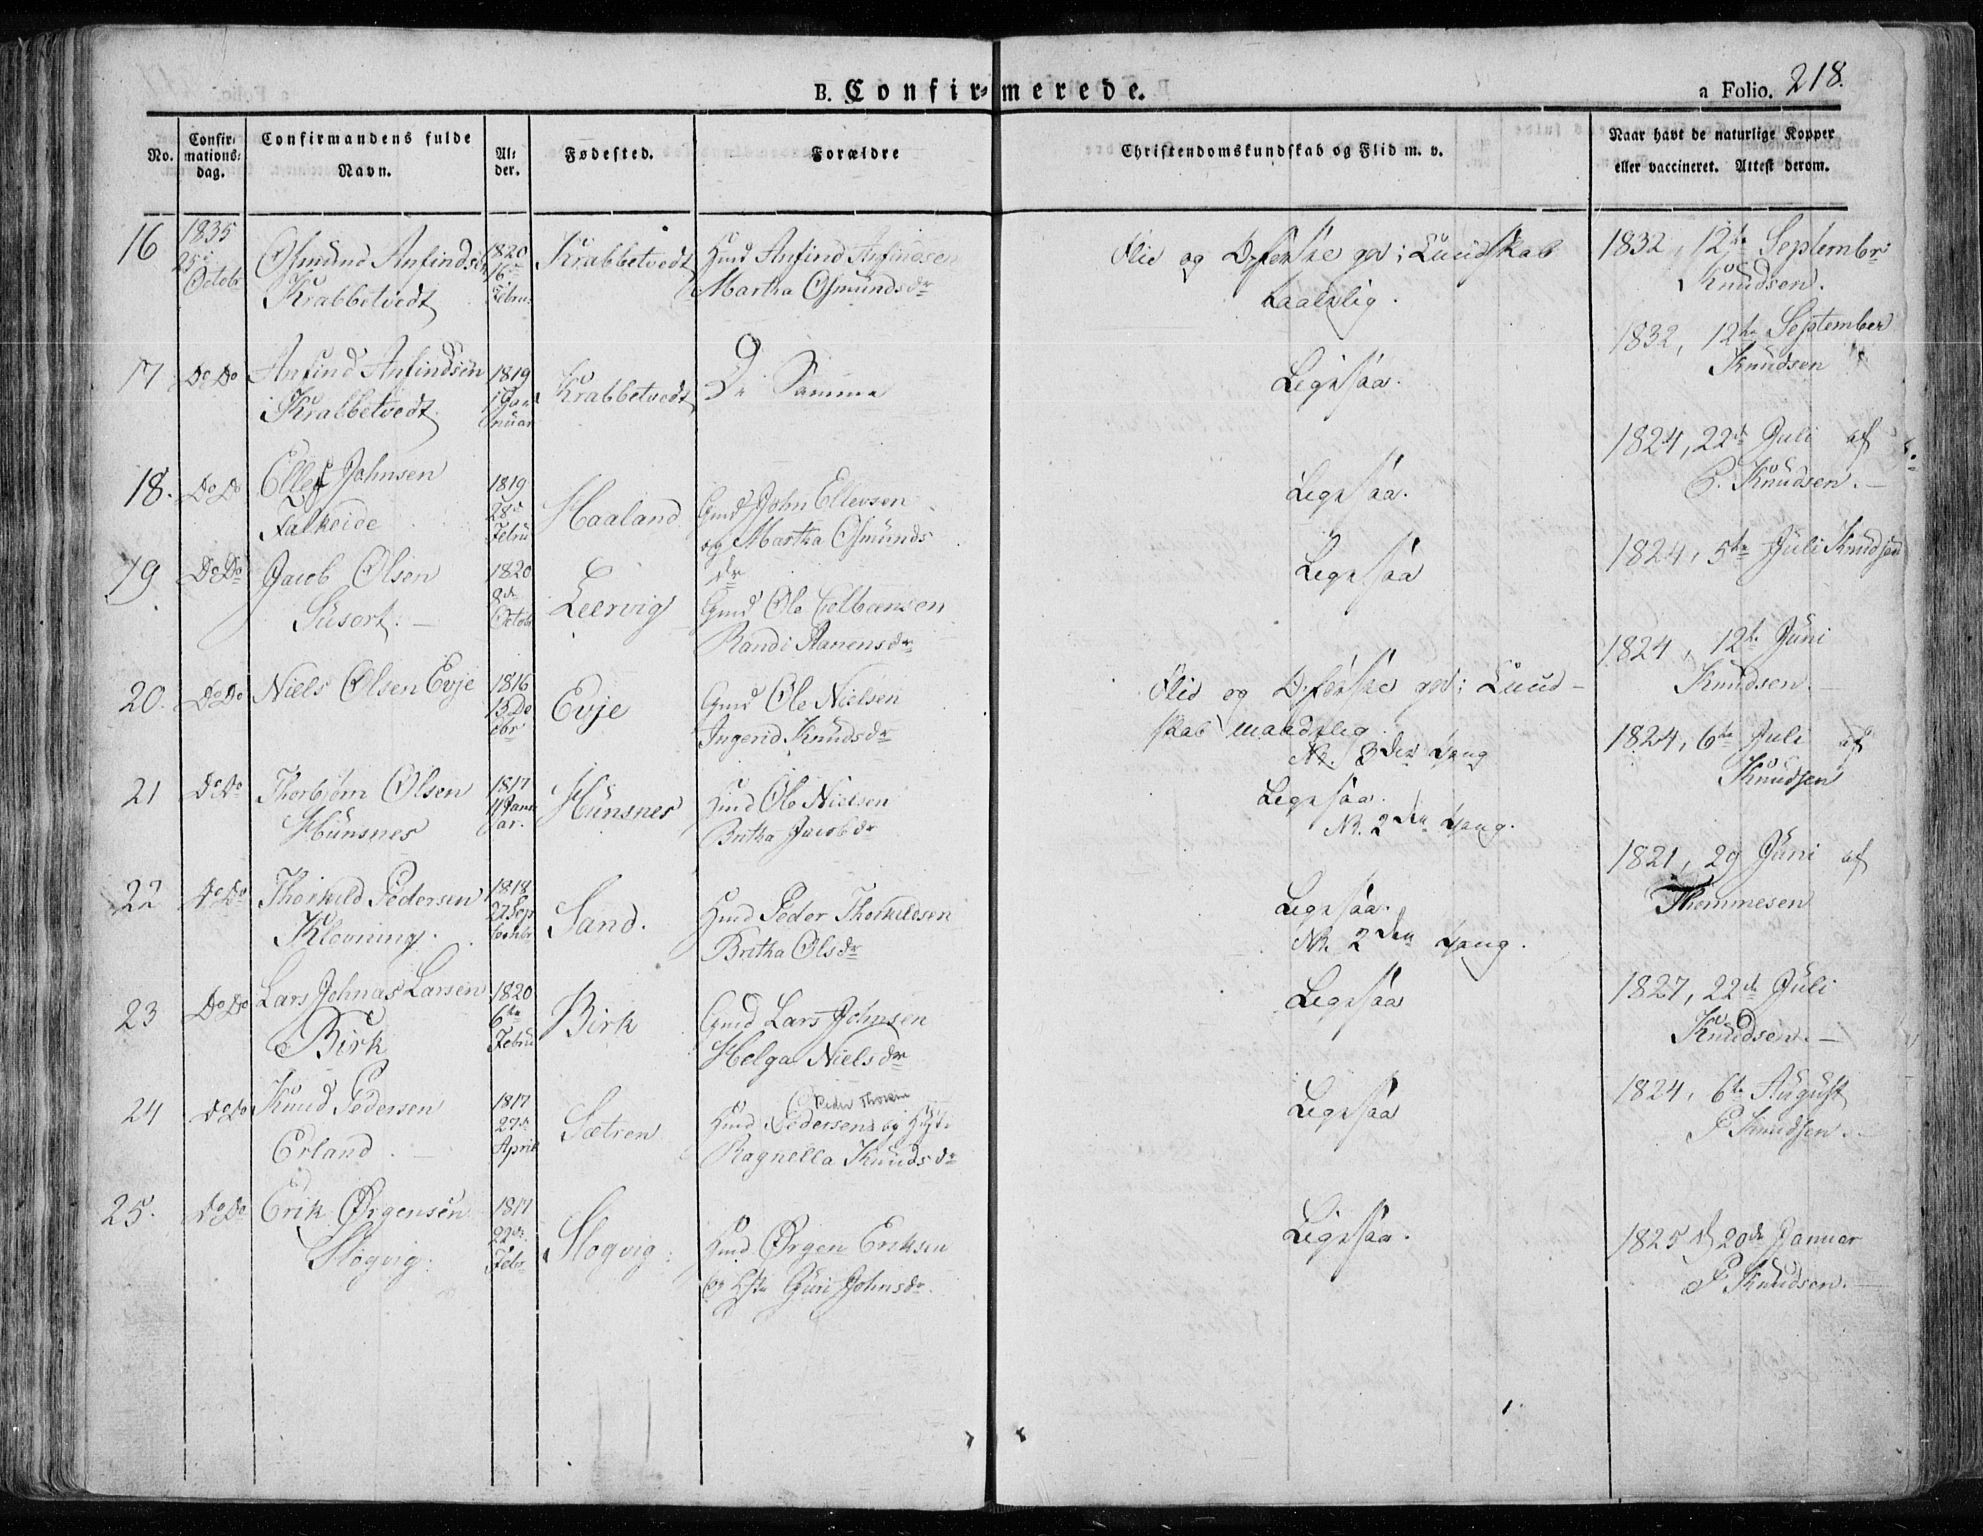 B. Confirmerede.
a Folio. 218.
No.
Confir-
mations-
dag.
Confirmandens fulde
Navn.
Al-
der.
Fødested.
Forældre
Christendomskundskab og Flid m. v.
Naar havt de naturlige Kopper
eller vaccineret. Attest derom.
16
1835
25de
Octobr
Osmund Anfindsen
Krabbetvedt
1820
16de
Febru
Krabbetvedt
Hmd Anfind Anfindsen
Martha Osmundsdr
Flid og
Kundskab
taalelig.
1832, 12te Septembr
Knudsen.
17
Do Do
Anfind Anfindsen
Krabbetvedt
1819
Januar
Krabbetvedt
De Samme
Ligesaa.
1832, 12te September
Knudsen
18.
Do Do
Ellef Johnsen
Falkeide
1819
28de
Febru
Haaland
Gmd John Ellevsen
og Martha Osmunds
dr
Ligesaa.
1824, 22de Juli af
P. Knudsen.
19
Do Do
Jacob Olsen
Susort.
1820
8de
Octobr
Leervig
Gmd Ole
Randi
Ligesaa
1824, 5te Juli Knudsen
20.
Do Do
Niels Olsen Evje
1816
13 De
cbr
Evje
Gmd Ole Nielsen
Ingerid Knudsdr
Flid og
Kund-
skab maadelig
NB. 3den Gang
1824, 12te Juni
Knudsen.
21
Do Do
Thorbjørn Olsen
Hünsnes
1817
Janu
ar.
Hünsnes
Hmd Ole Nielsen
Britha Jacobsdr
Ligesaa.
NB. 2den Gang.
1824, 6te Juli af
Knudsen
22
Do Do
Thorkild Pedersen
Klovning.
1818
27 Sep
tembr
Sand.
Hmd Peder Thorkildsen
Britha Olsdr
Ligesaa.
NB. 2den Gang.
1821, 29 Juni af
Thommesen
23
Do Do
Lars Johnas Larsen
Birk
1820
6te
Febru
Birk
Gmd Lars Johnsen
Helga Nielsdr
Ligesaa
1827, 22de Juli
Knudsen.
24
Do Do
Knud Pedersen
Erland.
1817
27de
April
Sætren
Peder
Hmd Pedersen og
Ragnella Knudsdr
Ligesaa
1824, 6te August
P Knudsen.
25.
Do Do
Erik Ørgensen
Slogvig.
1817
22de
Febr
Slogvig.
Hmd. Ørgen Eriksen
og Guri Johnsdr.
Ligesaa.
1825 d 20de Januar
P Knudsen.